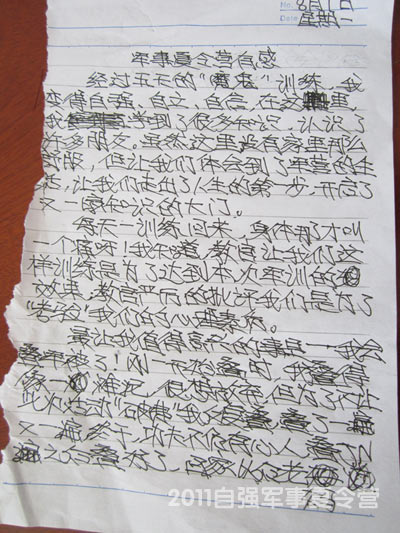 No. 8月1日
Date 星期一
军事夏令营有感
经过五天的"魔鬼"训练,我
变得自强、自立、自信,在这里,
我学到了很多知识,认识了
好多朋友。虽然这里没有家里那么
舒服,但让我们体会到了军营的生
活,让我们走出了人生的第一步,开启了
又一扇知识的大门。
每天一训练回来,身体那个才叫
一个疼呀!我知道,教官让我们这
样训练是为了达到本次军训的
效果,教官严厉的批评我们是为了
"考验"我们的心理素质。
最让我值得高兴的事是——我会
叠军被了!刚一开始叠时,我觉得
很难,很想放弃,但为了不让
此次活动"白跑"我又叠,叠了一
又一
2011自强军事夏令营